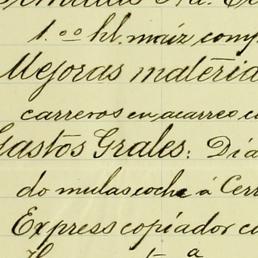 1.00 hl. maiz comp
Mejoras materia
carreros en acarreo c
Gastos Grales: Dia
do mulas coche á Cerr
Express copiador c